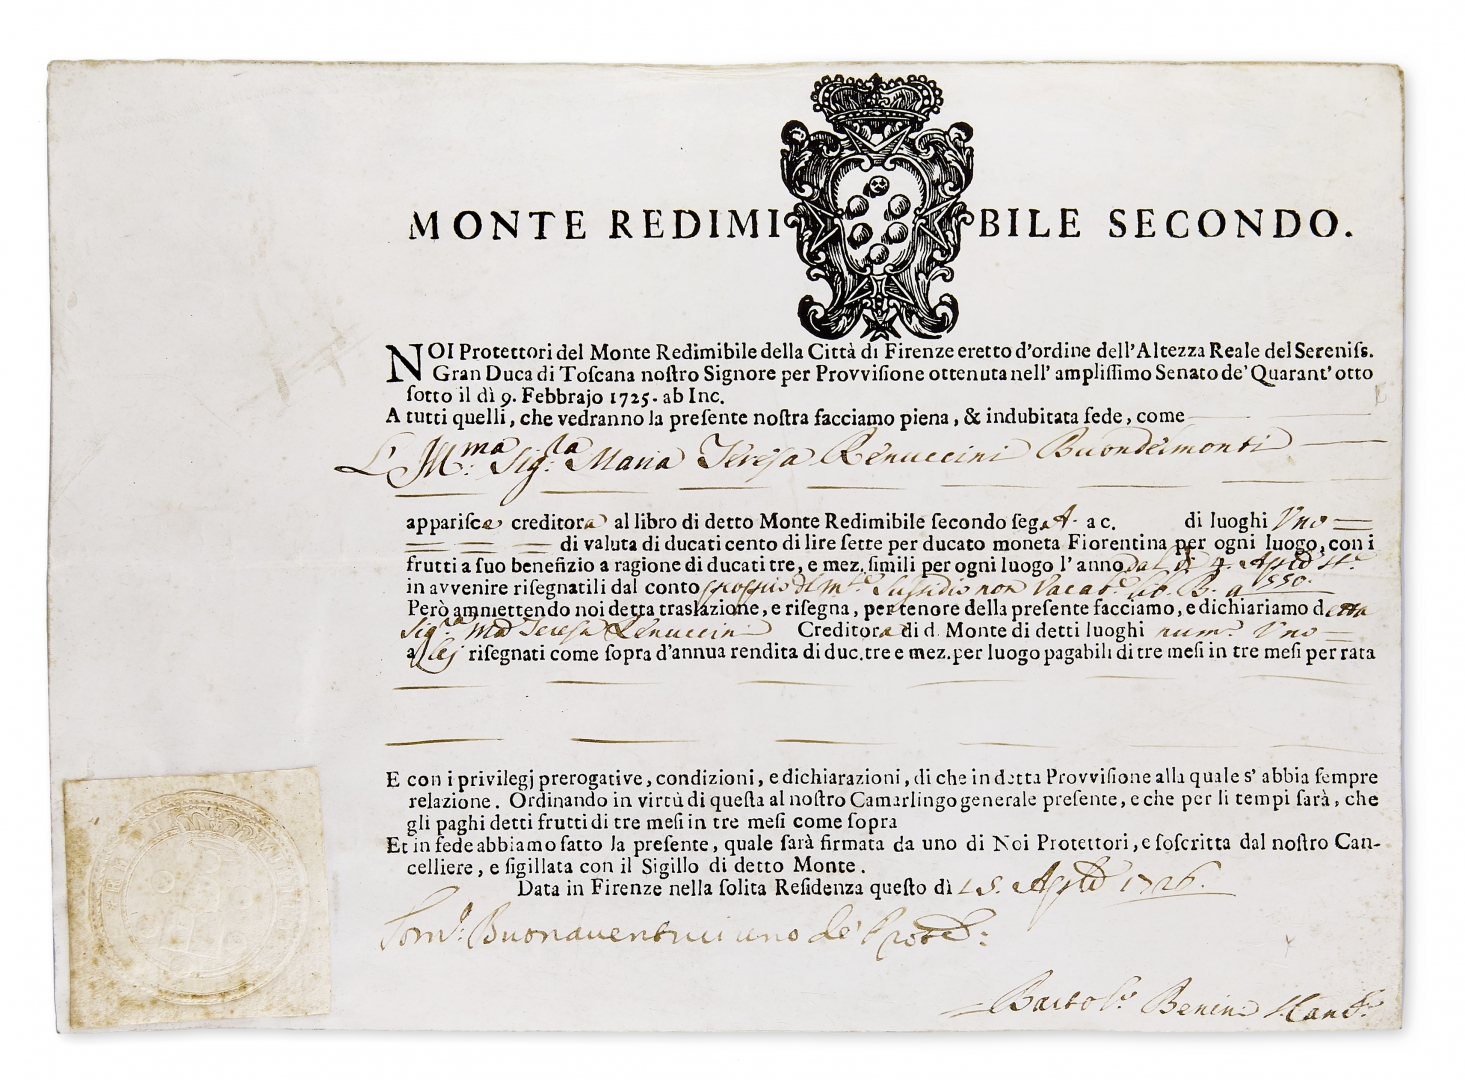 MONTE REDIMIBILE SECONDO.
NOI Protettori del Monte Redimibile della Città di Firenze eretto d'ordine dell'Altezza Reale del Sereniſs.
Gran Duca di Toſcana noſtro Signore per Provviſione ottenuta nell' ampliſſimo Senato de' Quarant' otto
ſotto il dì 9. Febbrajo 1725. ab Inc.
A tutti quelli, che vedranno la preſente noſtra facciamo piena, & indubitata fede, come
L' Ill:ma Sig:ra Maria Teresa Renuccini Buondelmonti
appariſce creditora al libro di detto Monte Redimibile ſecondo ſeg. A. a c. di luoghi Uno
di valuta di ducati cento di lire ſette per ducato moneta Fiorentina per ogni luogo, con i
frutti a ſuo benefizio a ragione di ducati tre, e mez. ſimili per ogni luogo l' anno dal dì
in avvenire riſegnatili dal conto proprio di m.te Suſsidio non Vacab.e lib. B. a 550.
Però ammettendo noi detta traslazione, e riſegna, per tenore della preſente facciamo, e dichiariamo detta
Sig.ra Ma Teresa Renuccini Creditora di d. Monte di detti luoghi num.o Uno
a lej riſegnati come ſopra d'annua rendita di duc. tre e mez. per luogo pagabili di tre meſi in tre meſi per rata
E con i privilegj prerogative, condizioni, e dichiarazioni, di che in detta Provviſione alla quale s' abbia ſempre
relazione. Ordinando in virtù di queſta al noſtro Camarlingo generale preſente, e che per li tempi ſarà, che
gli paghi detti frutti di tre meſi in tre meſi come ſopra
Et in fede abbiamo fatto la preſente, quale ſarà firmata da uno di Noi Protettori, e ſoſcritta dal noſtro Can-
celliere, e ſigillata con il Sigillo di detto Monte.
Data in Firenze nella ſolita Reſidenza queſto dì 15. Aple 1726.
Buonaventuri uno de' Prote:
Bartol.o Benini Canc.e